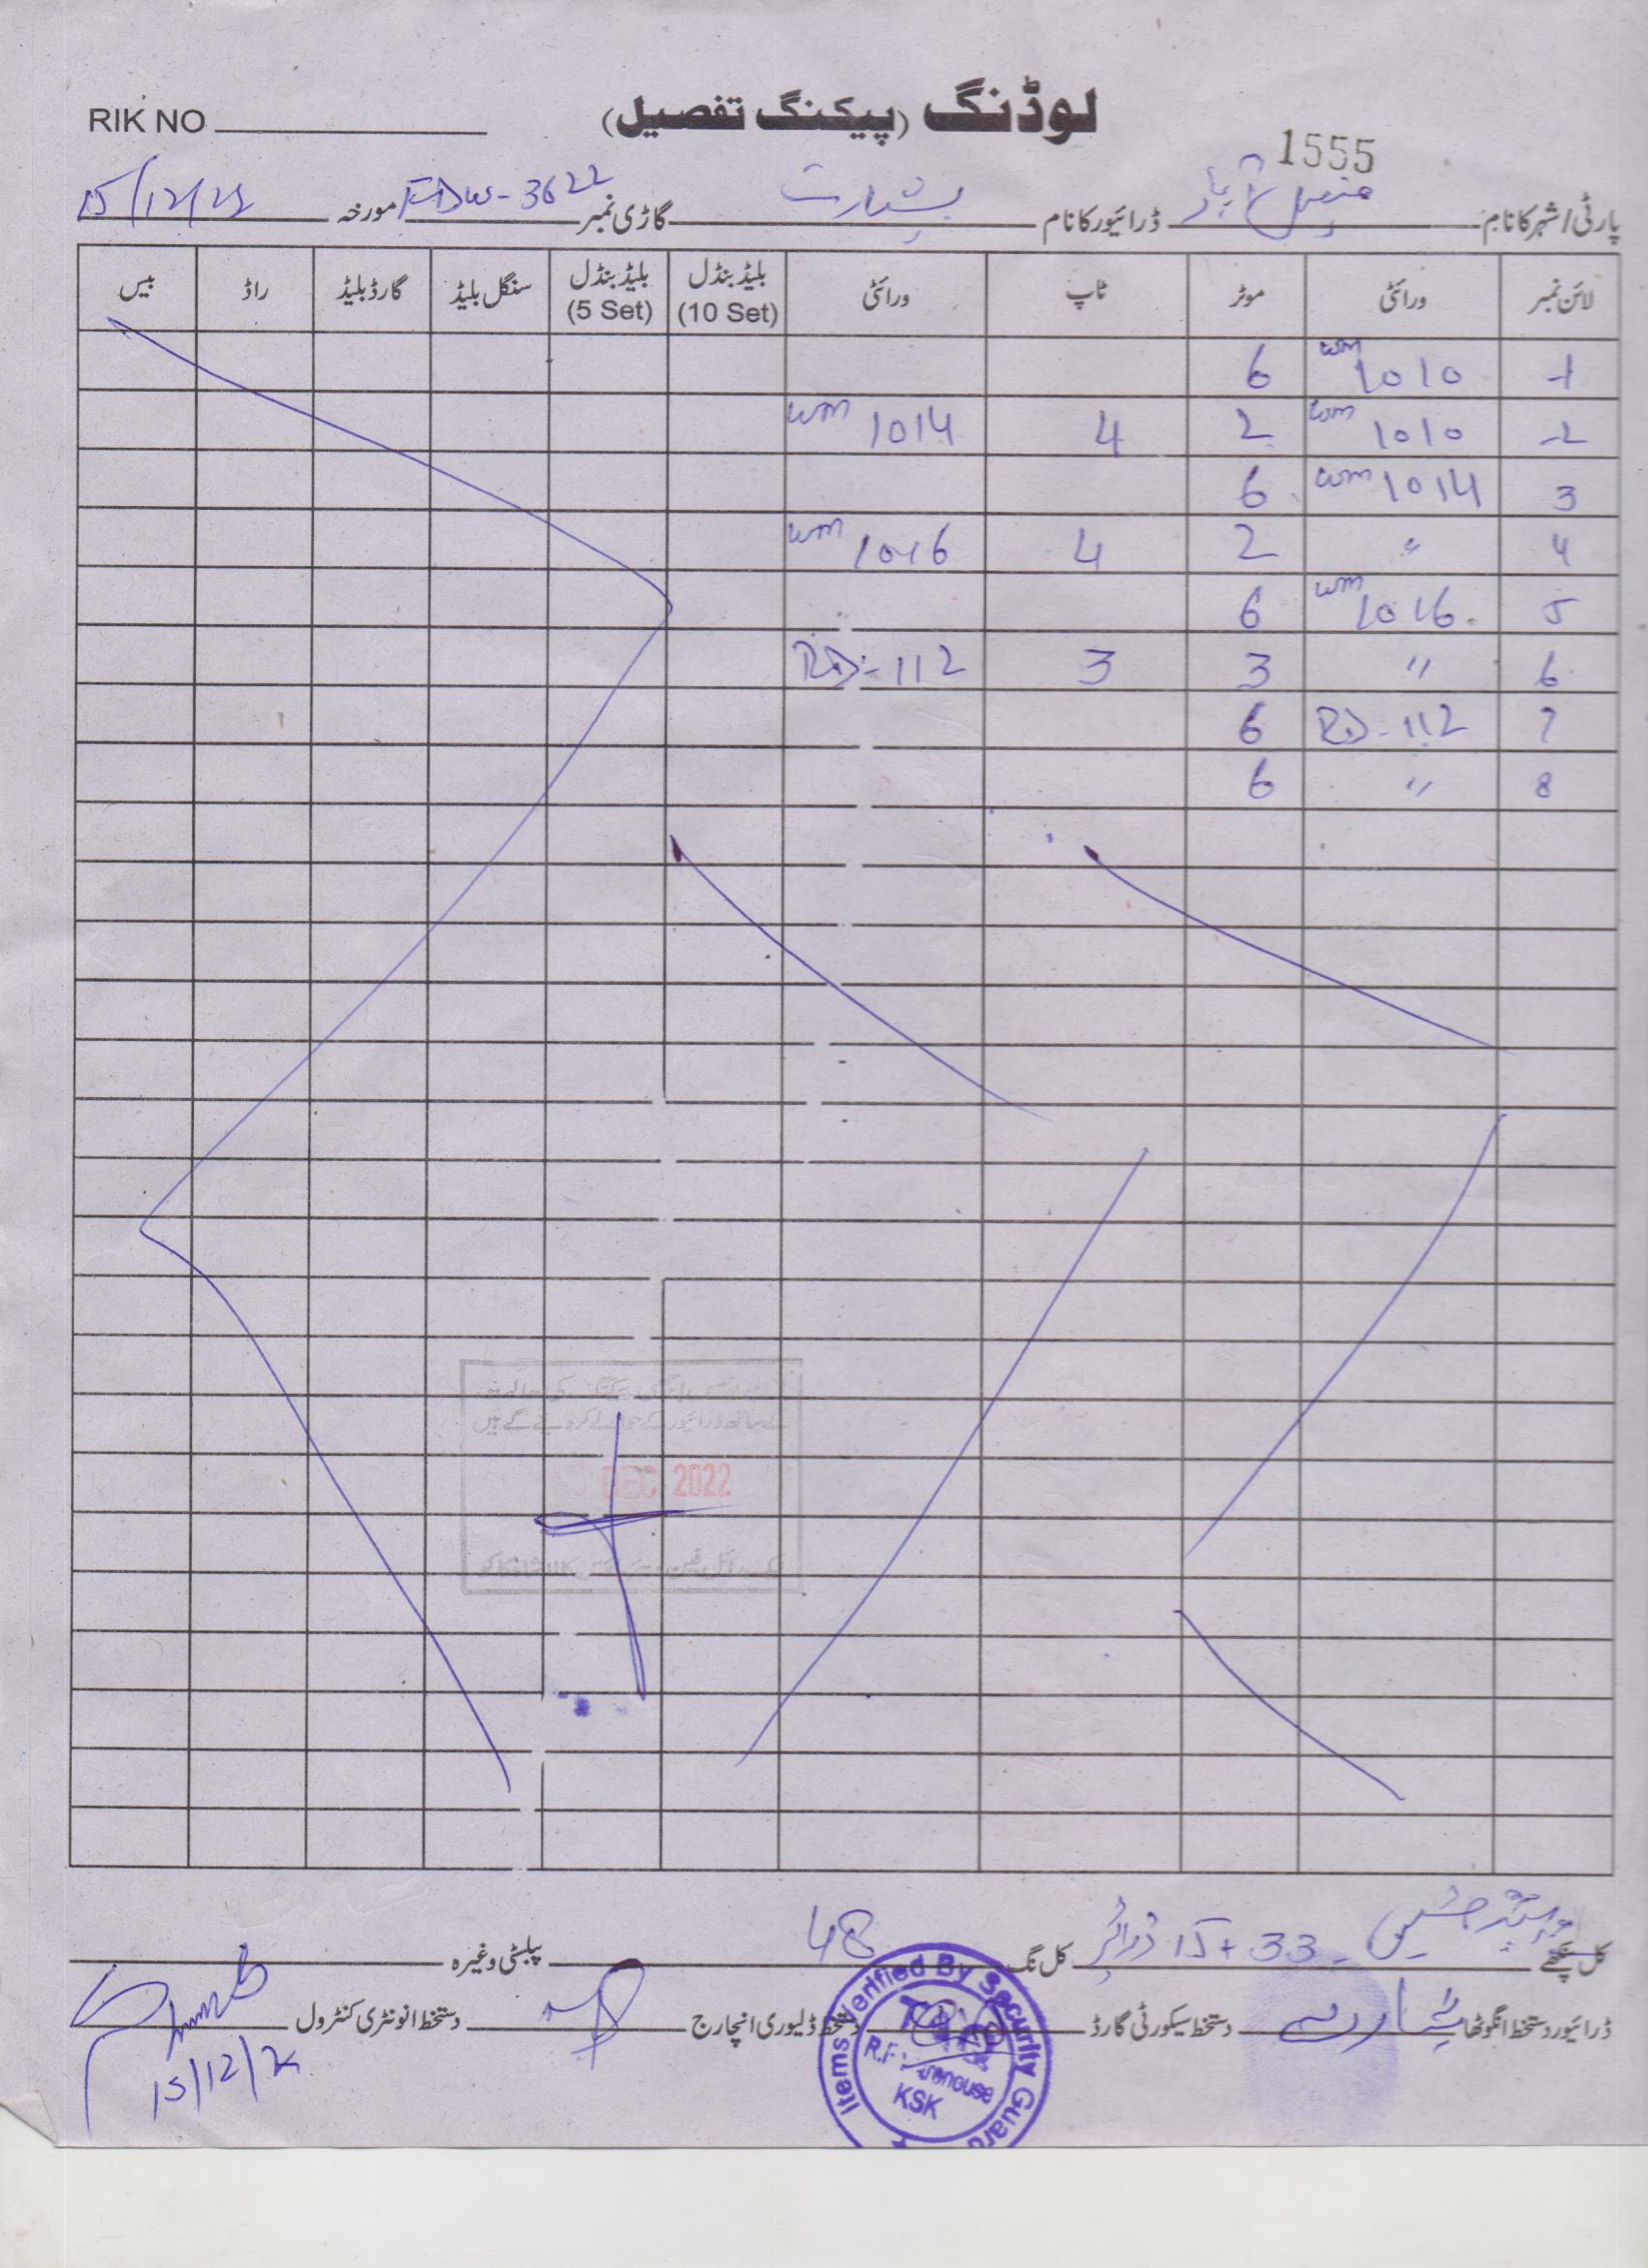 RIK NO
لوڈنگ (پیکنگ تفصیل)
1555
پارٹی/شہر کا نام فیصل آباد ڈرائیور کا نام بشارت گاڑی نمبر FDW-3622 مورخہ 15/12/22
لائن نمبر ورائٹی موٹر ٹاپ ورائٹی بلیڈ بنڈل (10 Set) بلیڈ بنڈل (5 Set) سنگل بلیڈ گارڈ بلیڈ راڈ بیس
1 wm 1010 6
2 wm 1010 2 4 wm 1014
3 wm 1014 6
4 " 2 4 wm 1016
5 wm 1016 6
6 " 3 3 R.D-112
7 R.D-112 6
8 " 6
DEC 2022
کل پنکھے 33 + 15 کل نگ 48 بلٹی وغیرہ
ڈرائیور دستخط انگوٹھا بشارت دستخط سیکورٹی گارڈ دستخط ڈلیوری انچارج دستخط انونٹری کنٹرول
15/12/22
Items Verified By Security Guard
KSK